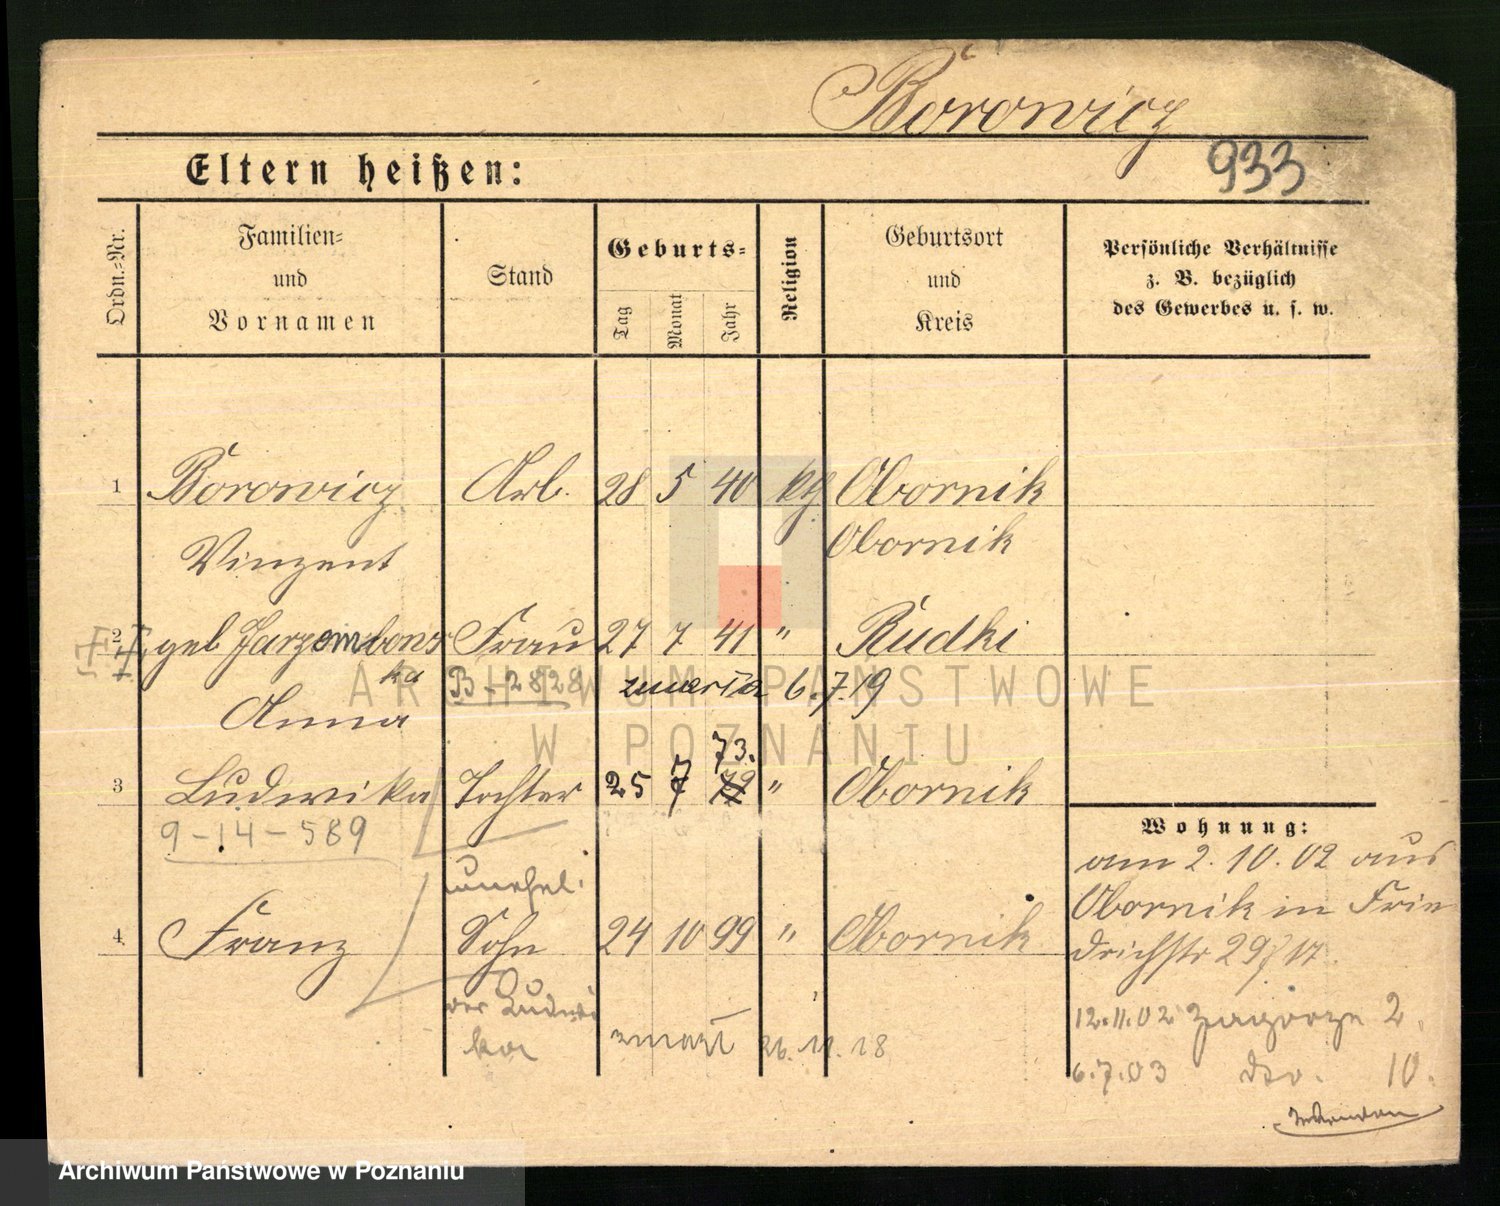 Borowicz
933
Eltern heißen:
Ordn.=Nr.
Familien=
und
Vornamen
Stand
Geburts=
Tag
Monat
Jahr
Religion
Geburtsort
und
Kreis
Persönliche Verhältnisse
z. B. bezüglich
des Gewerbes u. s. w.
1 Borowicz Arb. 28 5 40 kth Obornik
Vinzent Obornik
2 geb Jarzembows Frau 27 7 41 " Rudki
ka B-2828 zmarła 6.7.19
Anna
ARCHIWUM PAŃSTWOWE
W POZNANIU
73.
3 Ludwika Tochter 25 7 79 " Obornik
9-14-589
unehel.
4. Franz Sohn 24 10 99 " Obornik
der Ludwi
ka zmarł 26.11.18
Wohnung:
am 2.10.02 aus
Obornik in Frie
drichstr 29/17.
12.11.02 Zagórze 2.
6.7.03 dto. 10.
Archiwum Państwowe w Poznaniu